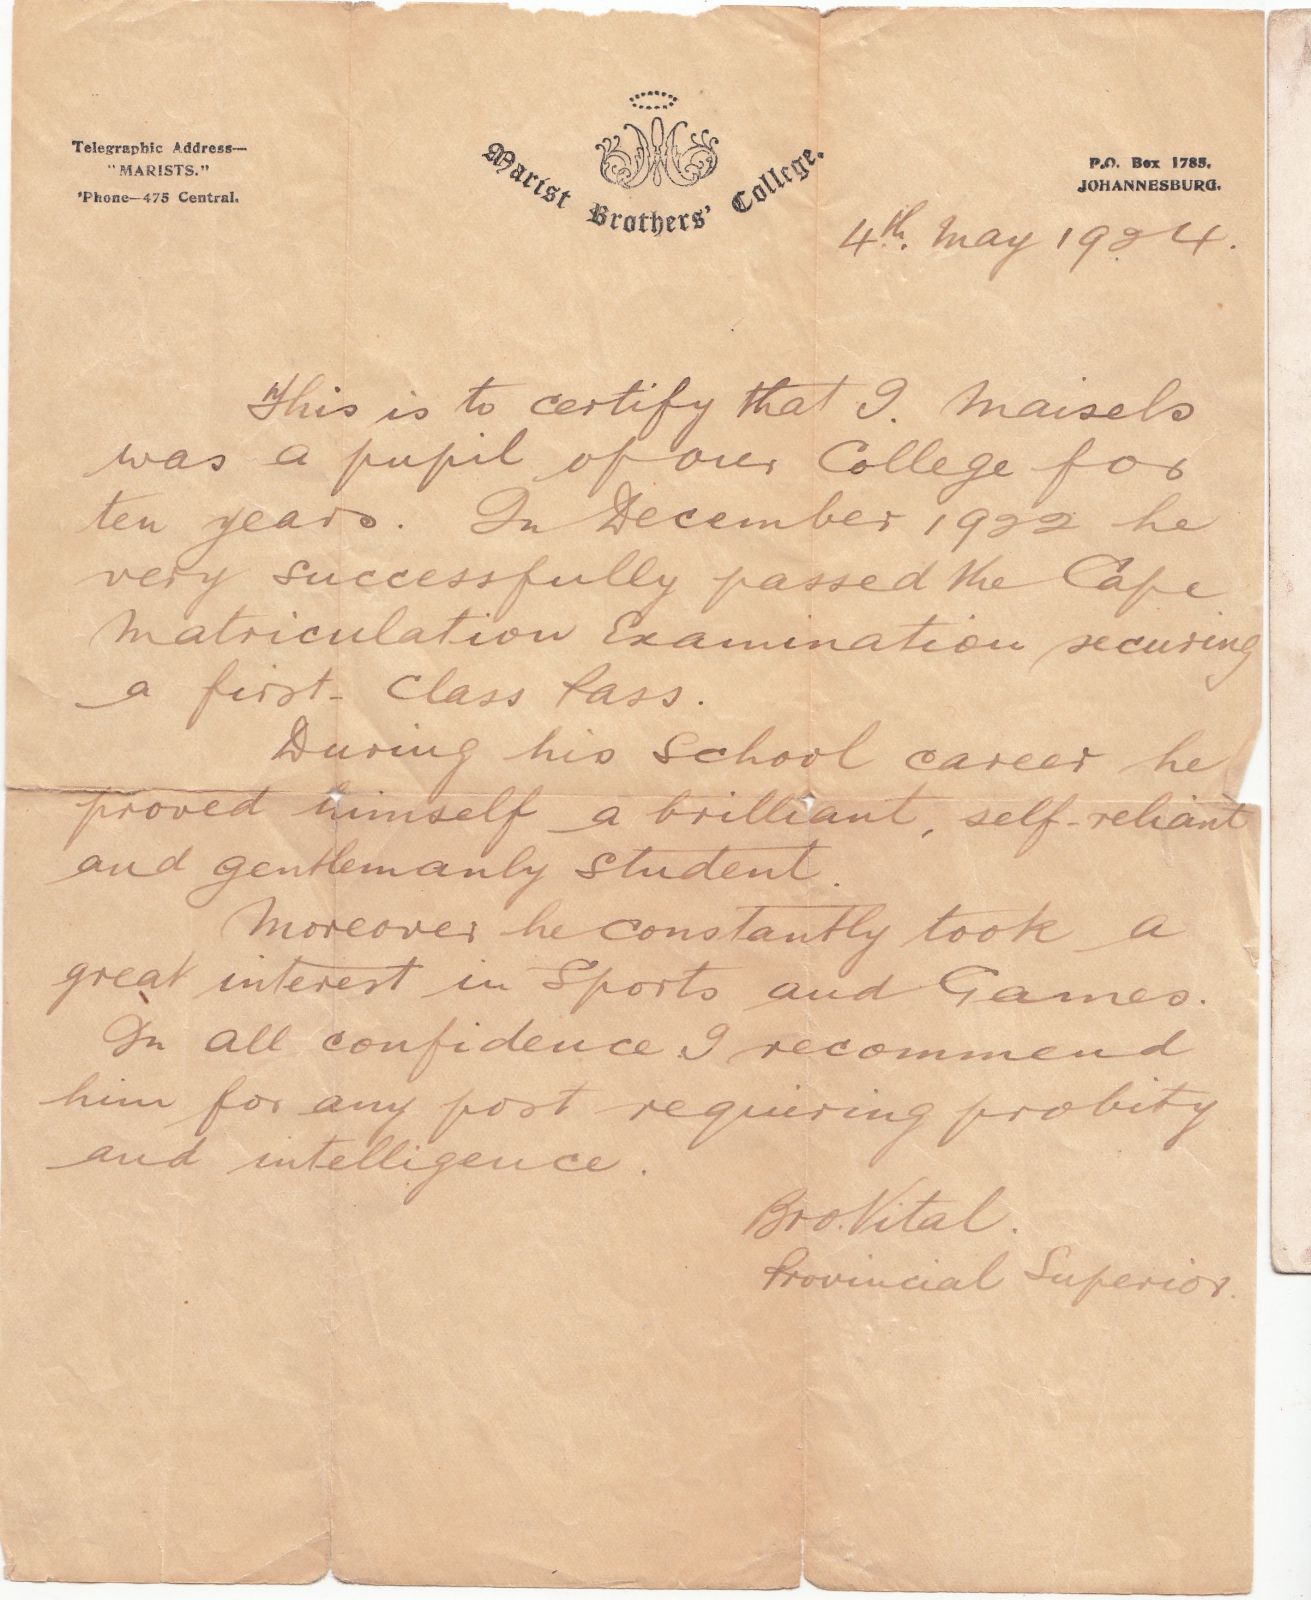 Telegraphic Address—
"MARISTS."
'Phone—475 Central.
Marist Brothers' College.
P.O. Box 1785.
JOHANNESBURG.
4th. May 1924.
This is to certify that I. Maisels
was a pupil of our College for
ten years. In December 1922 he
very successfully passed the Cape
Matriculation Examination securing
a first-Class Pass.
During his School career he
proved himself a brilliant, self-reliant
and gentlemanly student.
Moreover he constantly took a
great interest in Sports and Games.
In all confidence I recommend
him for any post requiering probity
and intelligence.
Bro. Vital.
Provincial Superior.